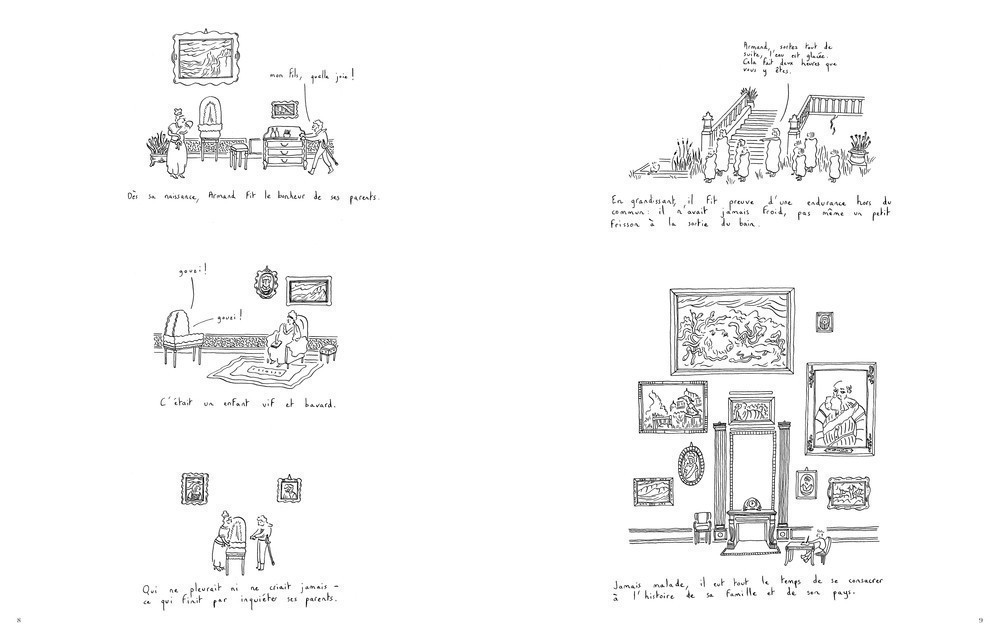 mon fils, quelle joie !
Dès sa naissance, Armand fit le bonheur de ses parents.
gouzi !
gouzi !
C'était un enfant vif et bavard.
Qui ne pleurait ni ne criait jamais -
ce qui finit par inquiéter ses parents.
8
Armand, sortez tout de
suite, l'eau est glacée.
Cela fait deux heures que
vous y êtes.
En grandissant, il fit preuve d'une endurance hors du
commun : il n'avait jamais froid, pas même un petit
frisson à la sortie du bain.
Jamais malade, il eut tout le temps de se consacrer
à l'histoire de sa famille et de son pays.
9